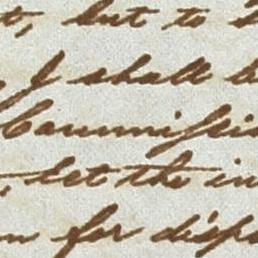 , but to
I shall
Commissi
, let the in
for disp